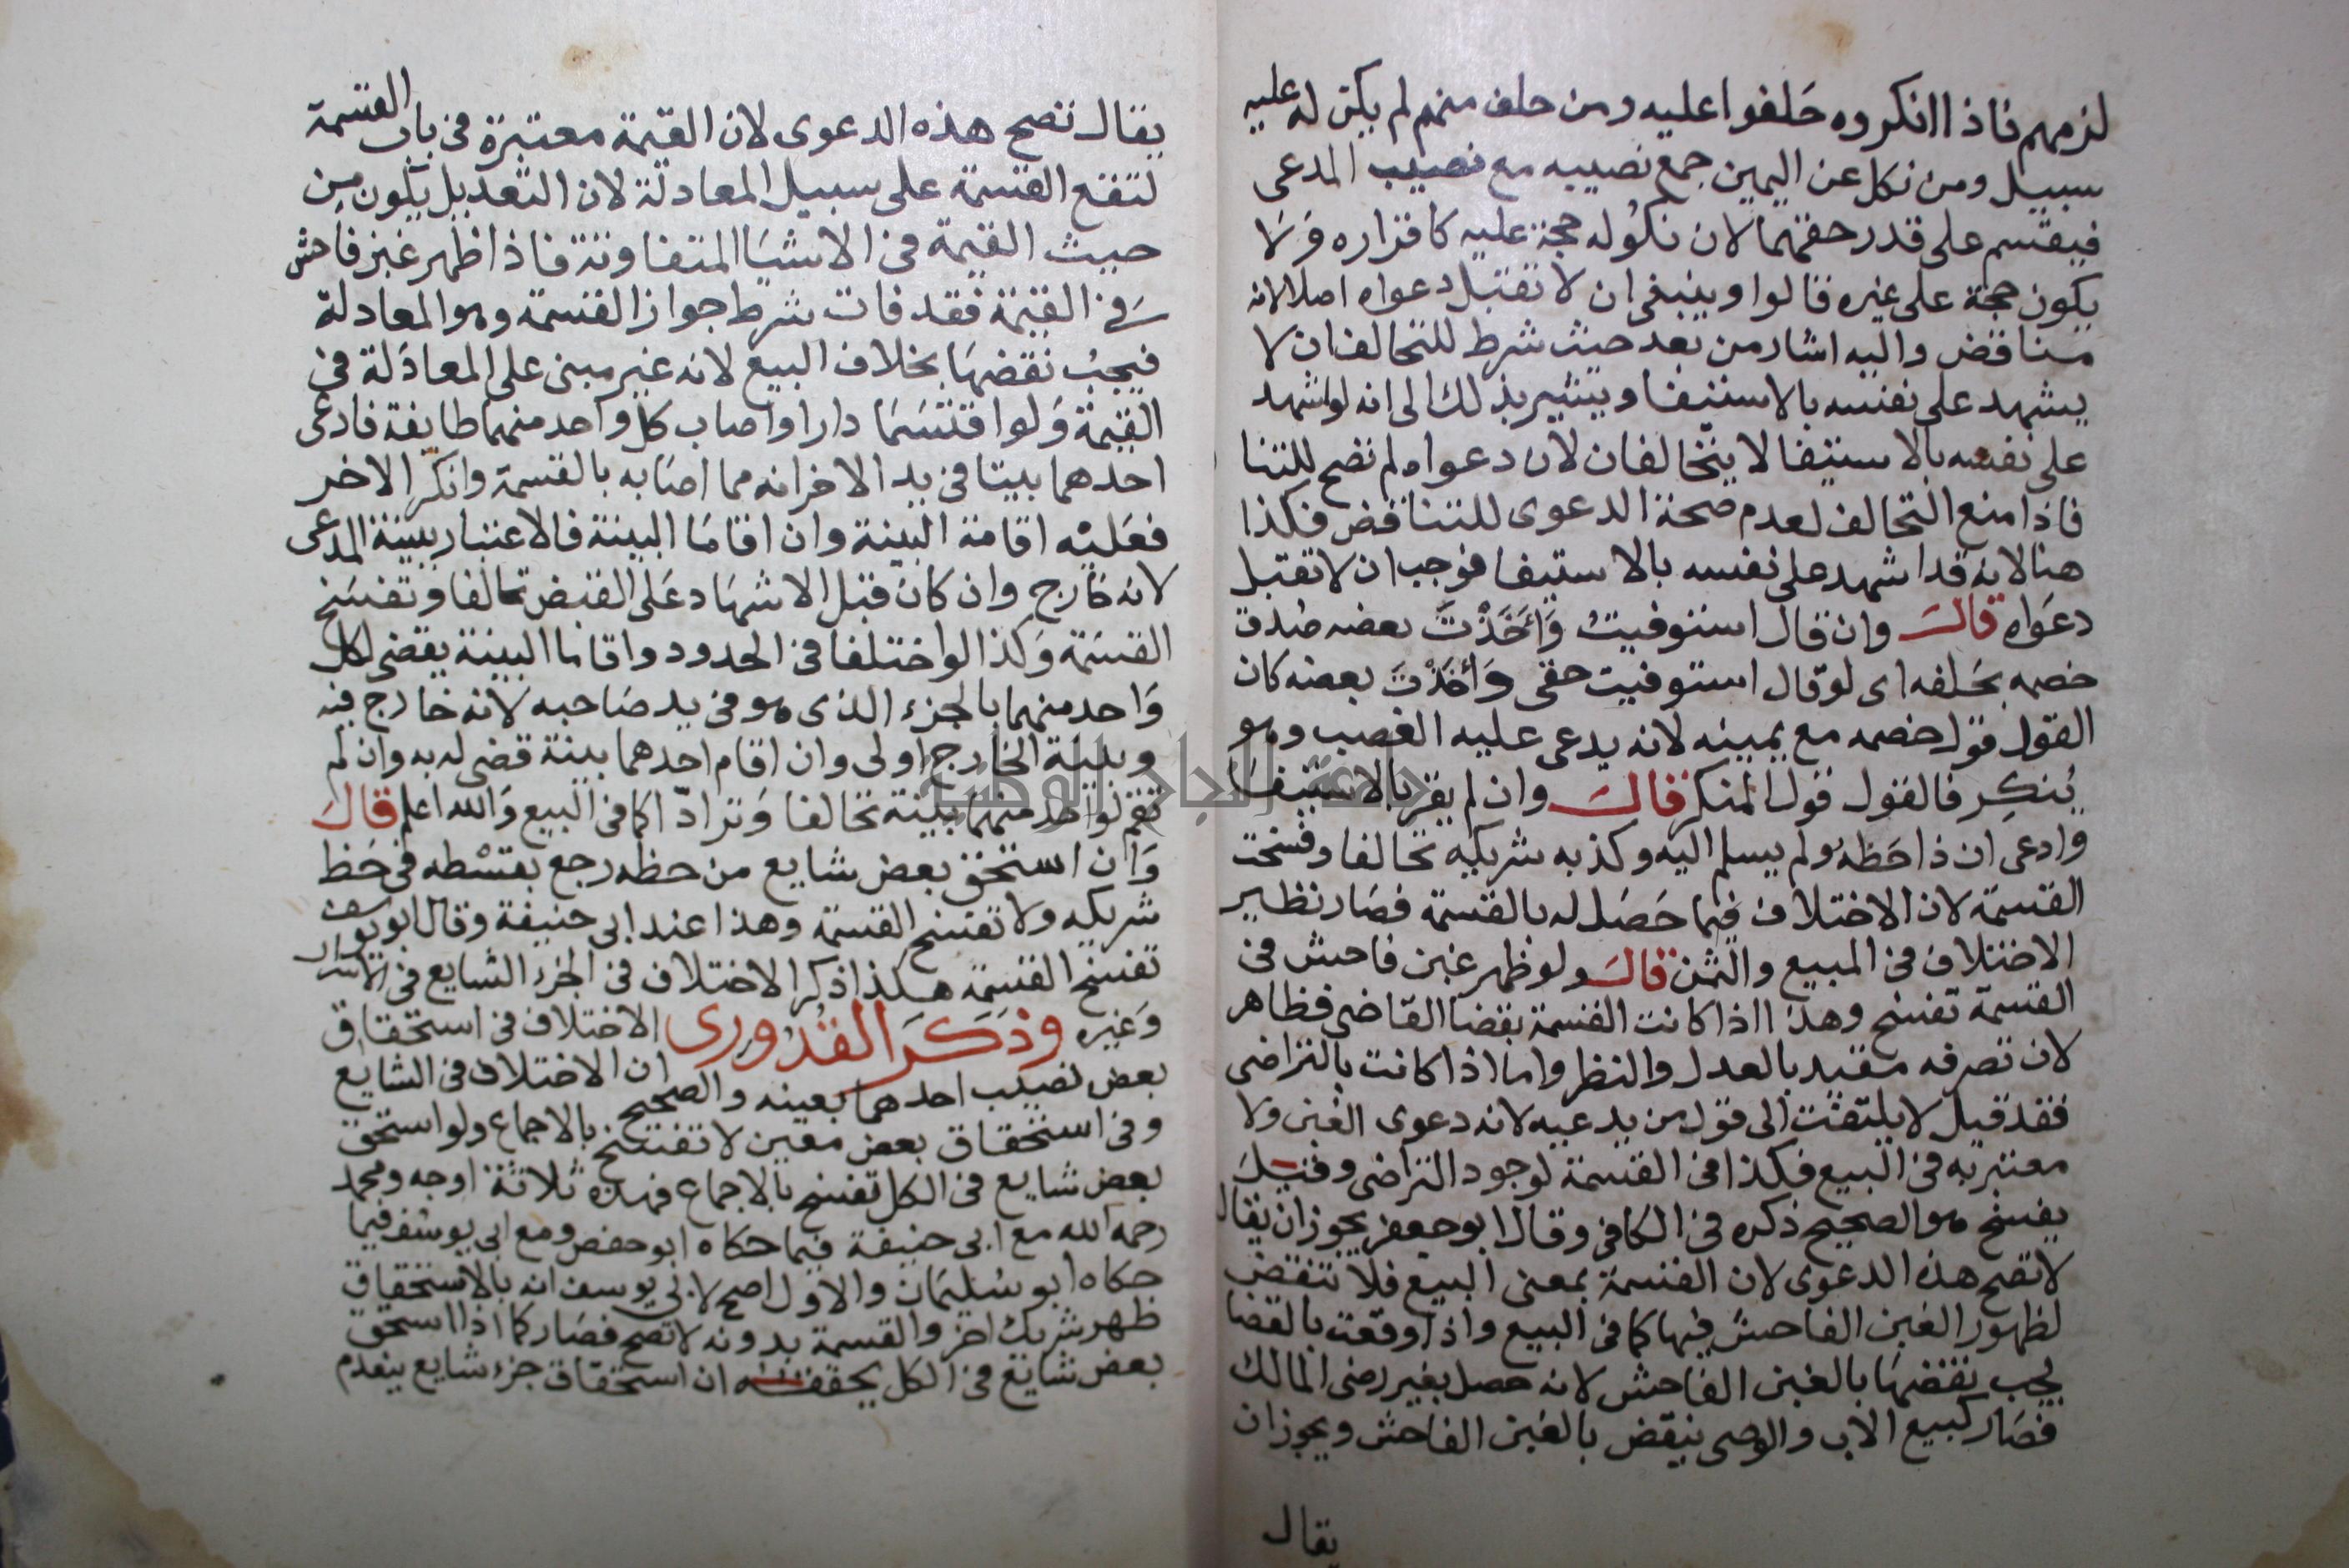 لزمهم فاذا انكروه حلفوا عليه ومن حلف منهم لم يكن له عليه
سبيل ومن نكل عن اليمين جمع نصيبه مع نصيب المدعى
فيقسم على قدر حقهما لان نكوله حجة عليه كاقراره وَلَا
يكون حجة على غيره قالوا وينبغى ان لا تقبل دعواه اصلا لانه
مناقض واليه اشار من بعد حيث شرط للتحالف ان لا
يشهد على نفسه بالاستيفا ويشير بذلك الى انه لو اشهد
على نفسه بالاستيفا لا يتحالفان لان دعواه لم تصح للتنا
فاذا منع التحالف لعدم صحة الدعوى للتناقض فكذا
هنا لانه قد اشهد على نفسه بالاستيفا فوجب ان لا تقبل
دعواه قالَ وان قال استوفيتُ وَاَخَذْتَ بعضه صُدق
خصمه بحلفه اى لو قال استوفيت حقى وَاَخَذْتَ بعضه كان
القول قول خصمه مع يمينه لانه يدعى عليه الغصب وهو
يُنكِر فالقول قول المنكر قالَ وان لم يقر بالاستيفا
وادعى ان ذا حظه ولم يسلم اليه وكذبه شريكه تحالفا وفسخت
القسمة لان الاختلاف فيما حصَل له بالقسمة فصَار نظير
الاختلاف فى المبيع والثمن قالَ ولو ظهر غبن فاحش فى
القسمة تفسخ وهذا اذا كانت القسمة بقضا القاضى فظاهر
لان تصرفه مقيد بالعدل والنظر واما اذا كانت بالتراضى
فقد قيل لا يلتفت الى قول من يدعيه لانه دعوى الغبن ولا
معتبر به فى البيع فكذا فى القسمة لوجود التراضى وقيلَ
يفسخ هو الصحيح ذكره فى الكافى وقال ابو جعفر يجوز ان يقال
لا تصح هذه الدعوى لان القسمة بمعنى البيع فلا تنقض
لظهور الغبن الفاحش فيها كما فى البيع واذا وقعت بالقضا
يجب نقضها بالغبن الفاحش لانه حصل بغير رضى المالك
فصَار كبيع الاب والوصى ينقض بالغبن الفاحش ويجوز ان
يقال
يقال تصح هذه الدعوى لان القيمة معتبرة فى باب القسمة
لتقع القسمة على سبيل المعادلة لان التعديل يكون مِن
حيث القيمة فى الاشيَا المتفاوتة فاذا ظهر غبن فاحش
فى القيمة فقد فات شرط جواز القسمة وهو المعادلة
فيجبُ نقضهَا بخلاف البيع لانه غير مبنى على المعادَلة فى
القيمة وَلو اقتسَمَا دارا واصاب كل واحد منهما طايفة فادعى
احدهما بيتا فى يد الاخر انه مما اصَابه بالقسمة وانكر الاخر
فعَليْه اقامة البينة وان اقامَا البينة فالاعتبار ببينة المدعى
لانه خارج وان كان قبل الاشهَاد عَلى القبض تحالفا وتفسَخ
القسَمة وَكذا لو اختلفا فى الحدود واقاما البينة يقضى لكل
وَاحد منهما بالجزء الذى هو فى يد صَاحبه لانه خارج فيه
وبينة الخارج اولى وان اقام احدهما بينة قضى له به وان لم
تقم لواحد منهما بينة تحالفا وَترادّا كما فى البيع وَالله اعلم قالَ
وَان استحق بعض شايع من حظه رجع بقسْطه فى حَظ
شريكه ولا تفسخ القسمة وهذا عند ابى حنيفة وقال ابو يوسف
تفسخ القسمة هكذا ذكر الاختلاف فى الجزء الشايع فى الاسرار
وَغيره وذكَرَ القُدُورى الاختلاف فى استحقاق
بعض نصيب احدهما بعينه والصحيح ان الاختلاف فى الشايع
وفى استحقاق بعض معين لا تفسخ بالاجماع ولو استحق
بعض شايع فى الكل تفسخ بالاجماع فهذه ثلاثة اوجه ومحمد
رحمه الله مع ابى حنيفة فيما حكاه ابو حفص ومع ابى يوسف فيما
حكاه ابو سُليمَان والاول اصح لابى يوسف انه بالاستحقاق
ظهر شريك اخر والقسمة بدونه لا تصح فصَار كما اذا استحق
بعض شايع فى الكل يحققه ان استحقاق جزء شايع ينعدم
جامعة النجاح الوطنية